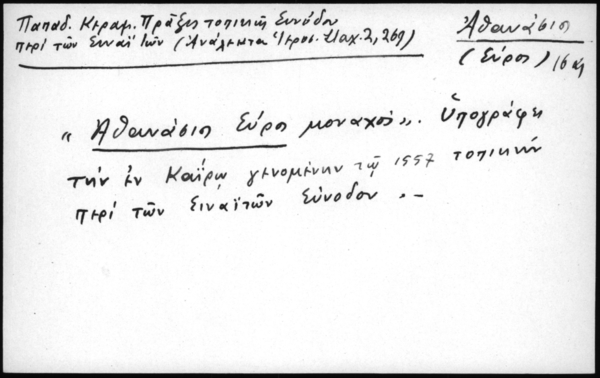 Παπαδ. Κεραμ. Πράξεις τοπικῆς Συνόδου
περὶ τῶν Σιναϊτῶν (Ἀνάλεκτα Ἱεροσ. Σταχ. 2, 269)
Ἀθανάσιος
(Σύρος) 16 αι
« Ἀθανάσιος Σύρος μοναχός». Ὑπογράφει
τὴν ἐν Καΐρῳ γενομένην τῷ 1557 τοπικὴν
περὶ τῶν Σιναϊτῶν Σύνοδον . –